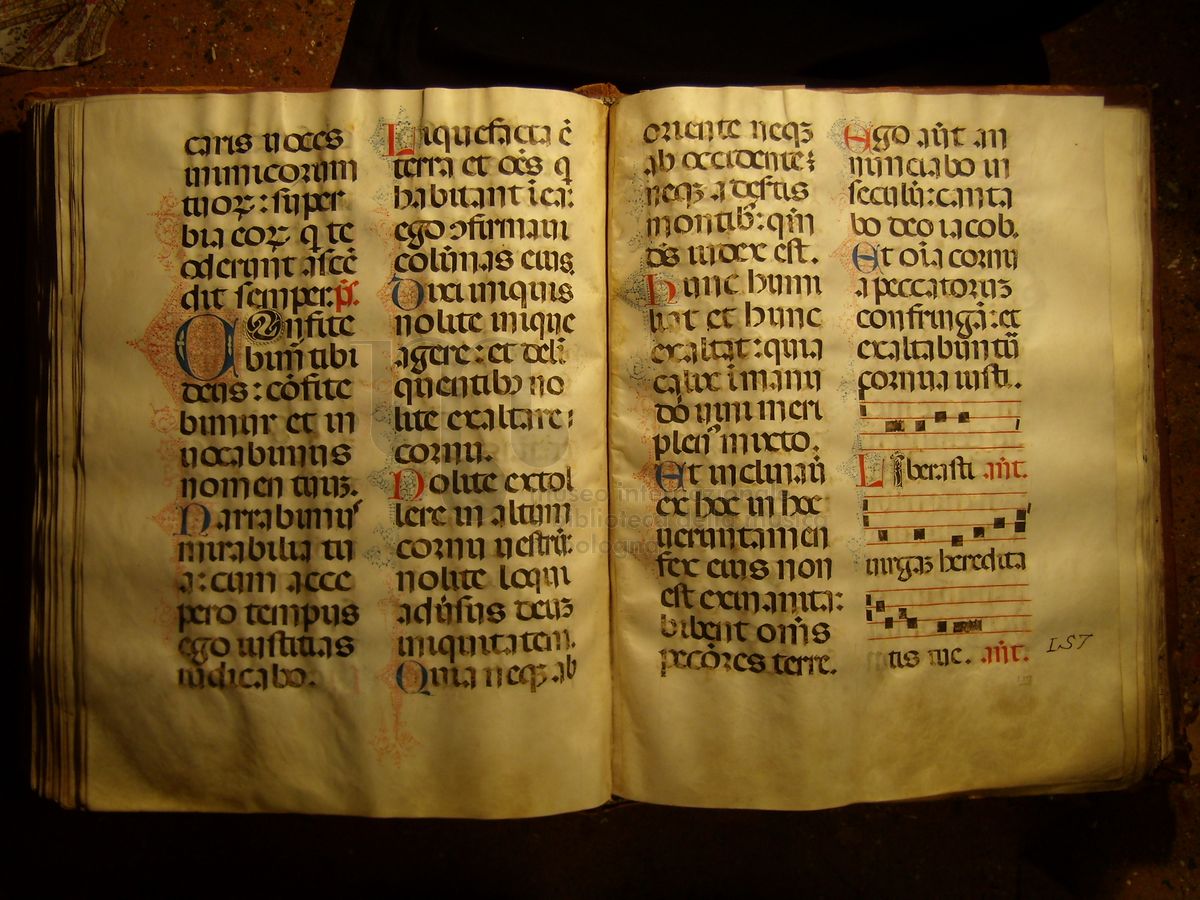 caris uoces
inimicorum
tuoꝝ : super
bia eoꝝ q te
oderunt ascē
dit semper. ps.
Confite
bimur tibi
deus : cōfite
bimur et in
uocabimus
nomen tuuꝫ.
Narrabimus
mirabilia tu
a : cum acce
pero tempus
ego iustitias
iudicabo.
Liquefacta ē
terra et oēs q
habitant i ea :
ego ɔfirmaui
colūnas eius.
Dixi iniquis
nolite inique
agere : et deli
quentibꝫ no
lite exaltare
cornu.
Nolite extol
lere in altum
cornu uestrū :
nolite loqui
aduersus deuꝫ
iniquitatem.
Quia neqꝫ ab
oriente neqꝫ
ab occidente ;
neqꝫ a desertis
montibꝰ : qm̄
ds̄ iudex est.
Hunc humi
liat et hunc
exaltat : quia
calix ī manu
dn̄i uini meri
plenꝰ mixto.
Et inclinauit
ex hoc in hoc
ueruntamen
fex eius non
est exinanita :
bibent om̄s
peccōres terre.
Ego aūt an
nunciabo in
seculū : canta
bo deo iacob.
Et oīa cornu
a peccatoruꝫ
confringā : et
exaltabuntū
cornua iusti.
Liberasti ant.
uirgaꝫ heredita
tis tue. ant.
157
museo internazionale
biblioteca della musica
bologna